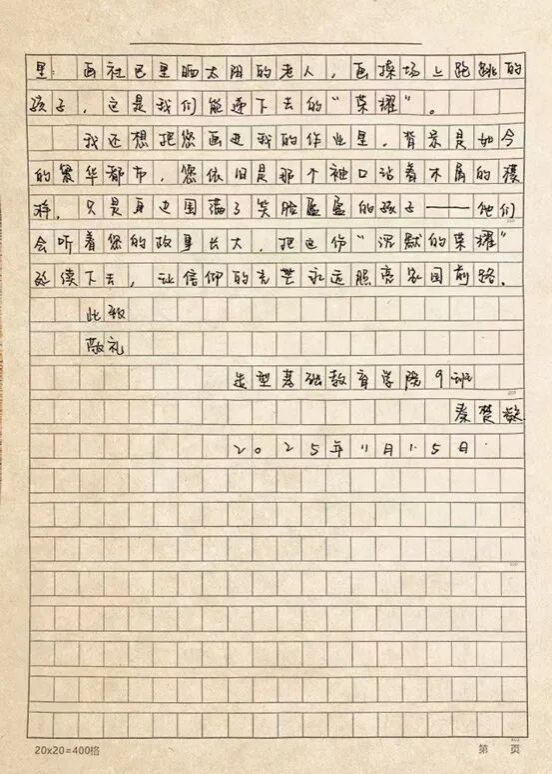 里；画社巴里晒太阳的老人，画操场上跑跳的
孩子，这是我们能递下去的“荣耀”。
我还想把您画进我的作业里，背景是如今
的繁华都市，您依旧是那个袖口沾着木屑的模
样，只是身边围满了笑脸盈盈的孩子——他们
会听着您的故事长大，把这份“沉默的荣耀”
延续下去，让信仰的光芒永远照亮家国前路。
此致
敬礼
造型基础教育学院9班
秦楚
2025年11月15日
20×20=400格
第 页